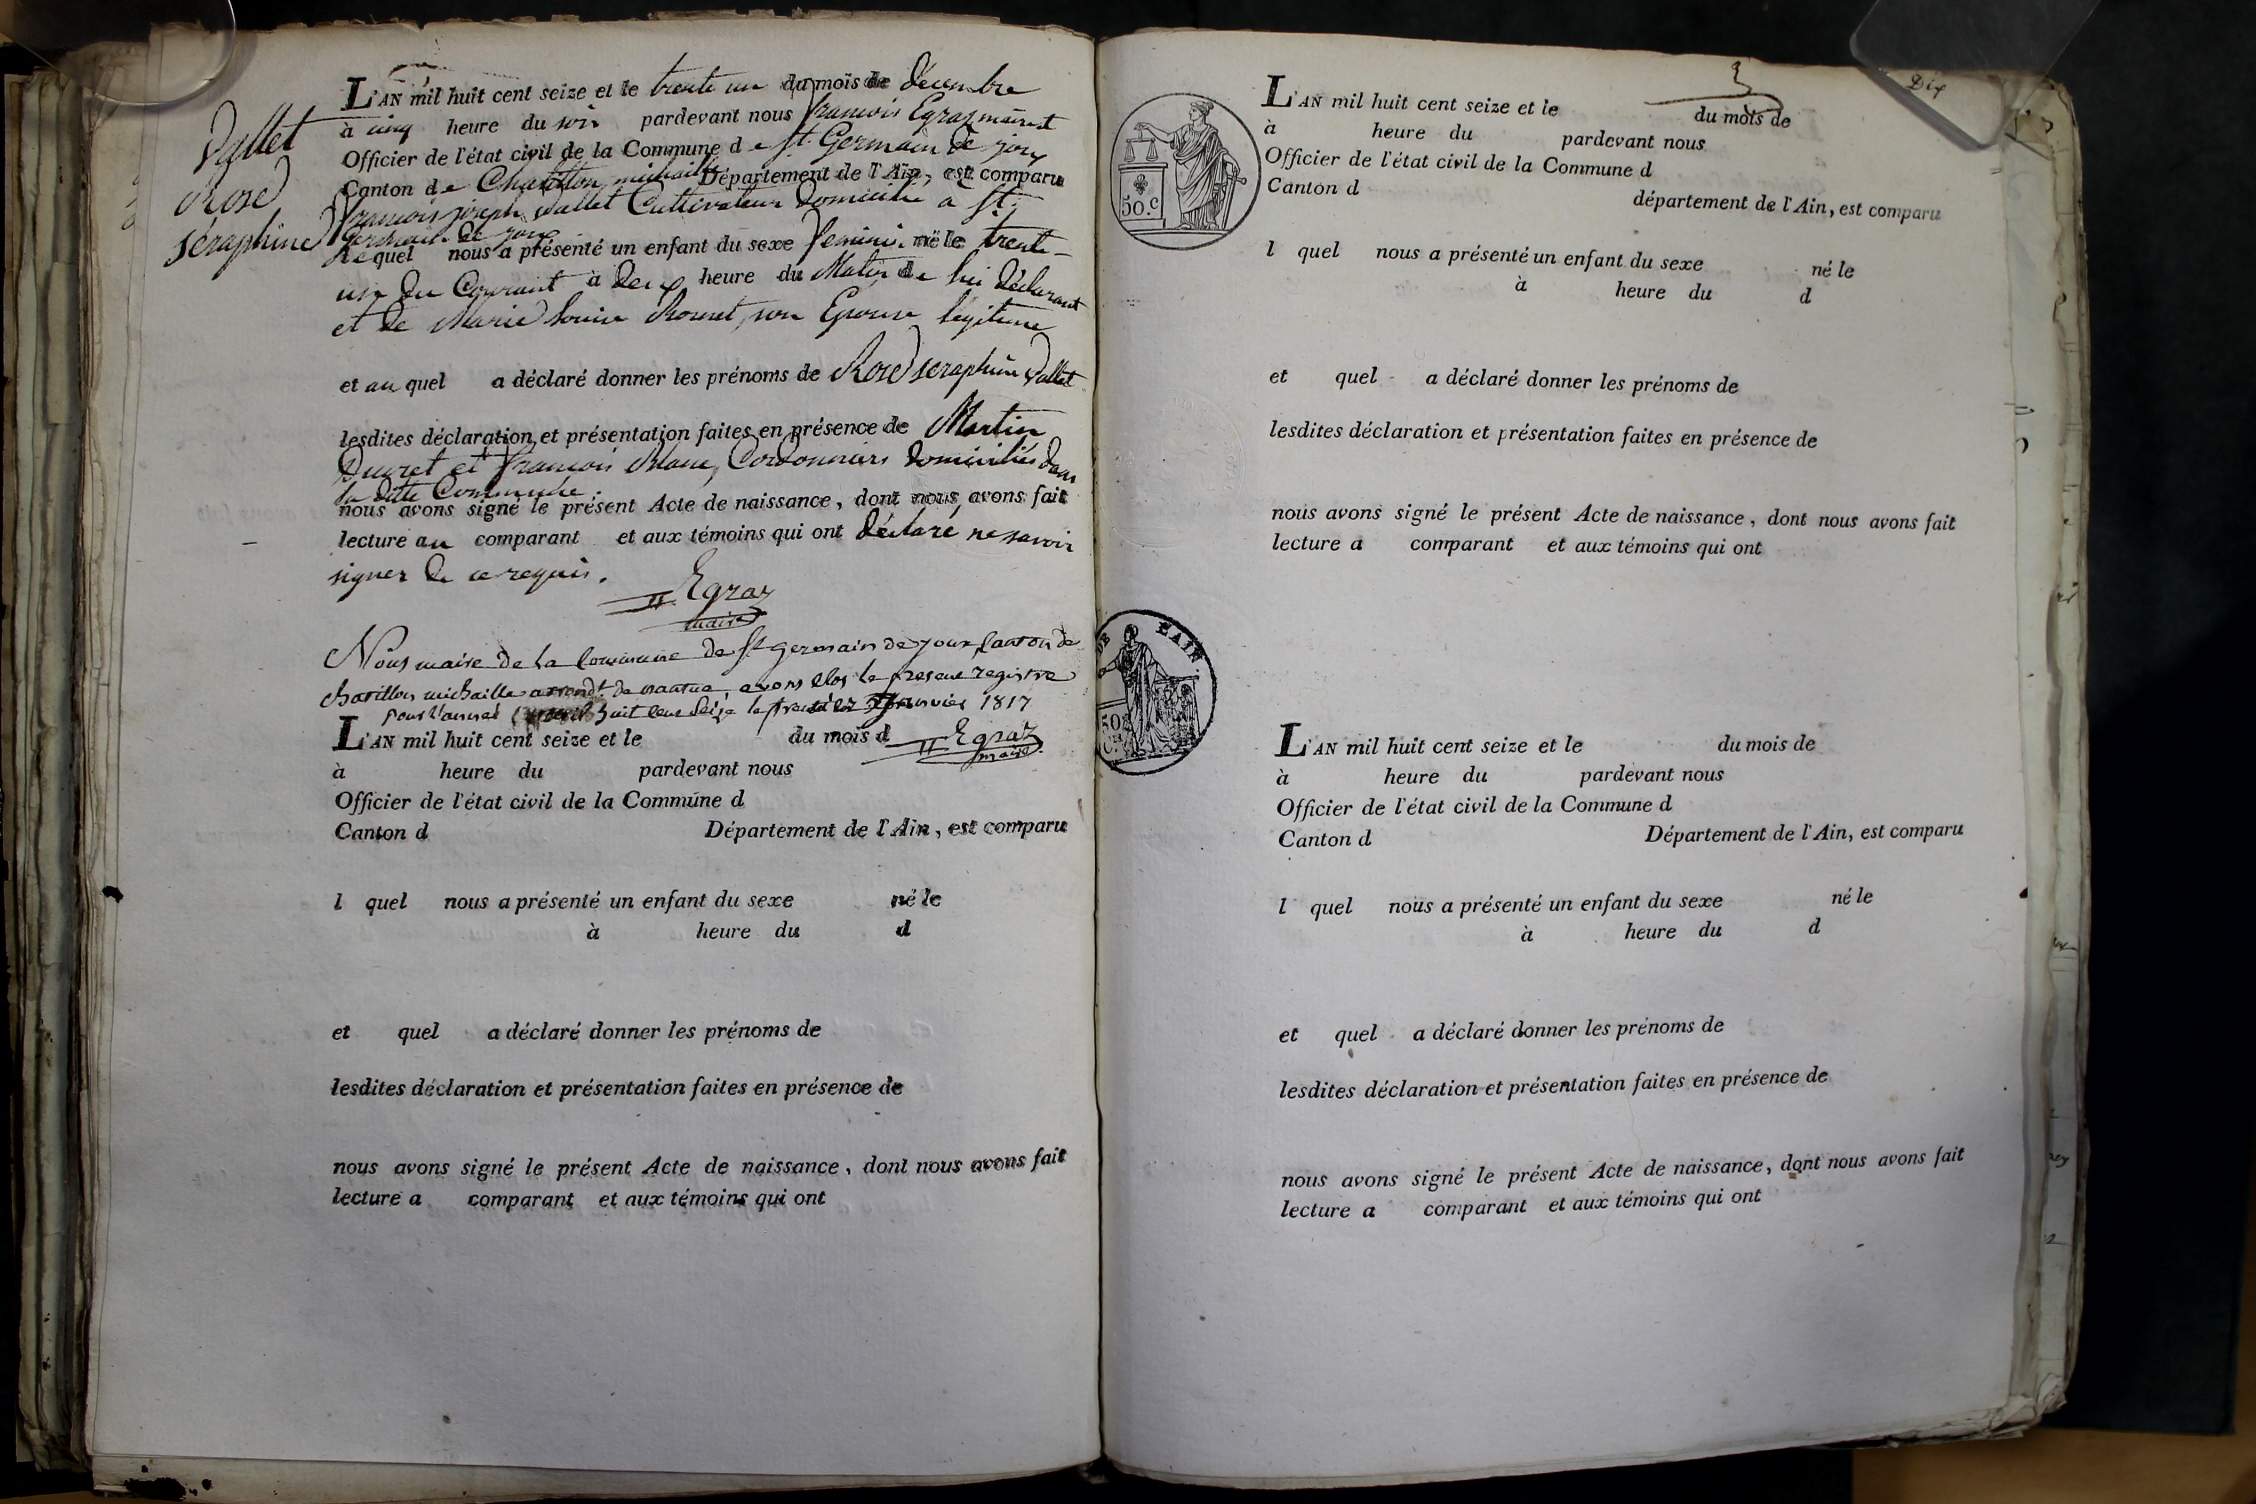 Vallet
Rose
séraphine
L'AN mil huit cent seize et le trente un du mois de décembre
à cinq heure du soir pardevant nous françois Egraz maire et
Officier de l'état civil de la Commune de St. Germain de joux
Canton de Chatillon michaille Département de l'Ain, est comparu
françois joseph Vallet Cultivateur Domicilié a St.
germain de joux
Lequel nous a présenté un enfant du sexe feminin né le trente
un du Courant à deux heure du Matin de lui déclarant
et de Marie Louise son Epouse légitime
et au quel a déclaré donner les prénoms de Rose seraphine Vallet
lesdites déclaration et présentation faites en présence de Martin
Ducret et françois Blanc, Cordonniers domiciliés dans
la ditte Commune.
nous avons signé le présent Acte de naissance, dont nous avons fait
lecture au comparant et aux témoins qui ont déclaré ne savoir
signer de ce requis.
Egraz
maire
Nous maire de la Commune de St germain de joux, Canton de
chatillon michaille arrondt. de nantua, avons clos le present registre
pour l'année mil huit cent seize le premier janvier 1817
Egraz
maire
L'AN mil huit cent seize et le du mois d
à heure du pardevant nous
Officier de l'état civil de la Commune d
Canton d Département de l'Ain, est comparu
l quel nous a présenté un enfant du sexe né le
à heure du d
et quel a déclaré donner les prénoms de
lesdites déclaration et présentation faites en présence de
nous avons signé le présent Acte de naissance, dont nous avons fait
lecture a comparant et aux témoins qui ont
Dix
50.C
L'AN mil huit cent seize et le du mois de
à heure du pardevant nous
Officier de l'état civil de la Commune d
Canton d département de l'Ain, est comparu
l quel nous a présenté un enfant du sexe né le
à heure du d
et quel a déclaré donner les prénoms de
lesdites déclaration et présentation faites en présence de
nous avons signé le présent Acte de naissance, dont nous avons fait
lecture a comparant et aux témoins qui ont
50
C.
L'AN mil huit cent seize et le du mois de
à heure du pardevant nous
Officier de l'état civil de la Commune d
Canton d Département de l'Ain, est comparu
l quel nous a présenté un enfant du sexe né le
à heure du d
et quel a déclaré donner les prénoms de
lesdites déclaration et présentation faites en présence de
nous avons signé le présent Acte de naissance, dont nous avons fait
lecture a comparant et aux témoins qui ont